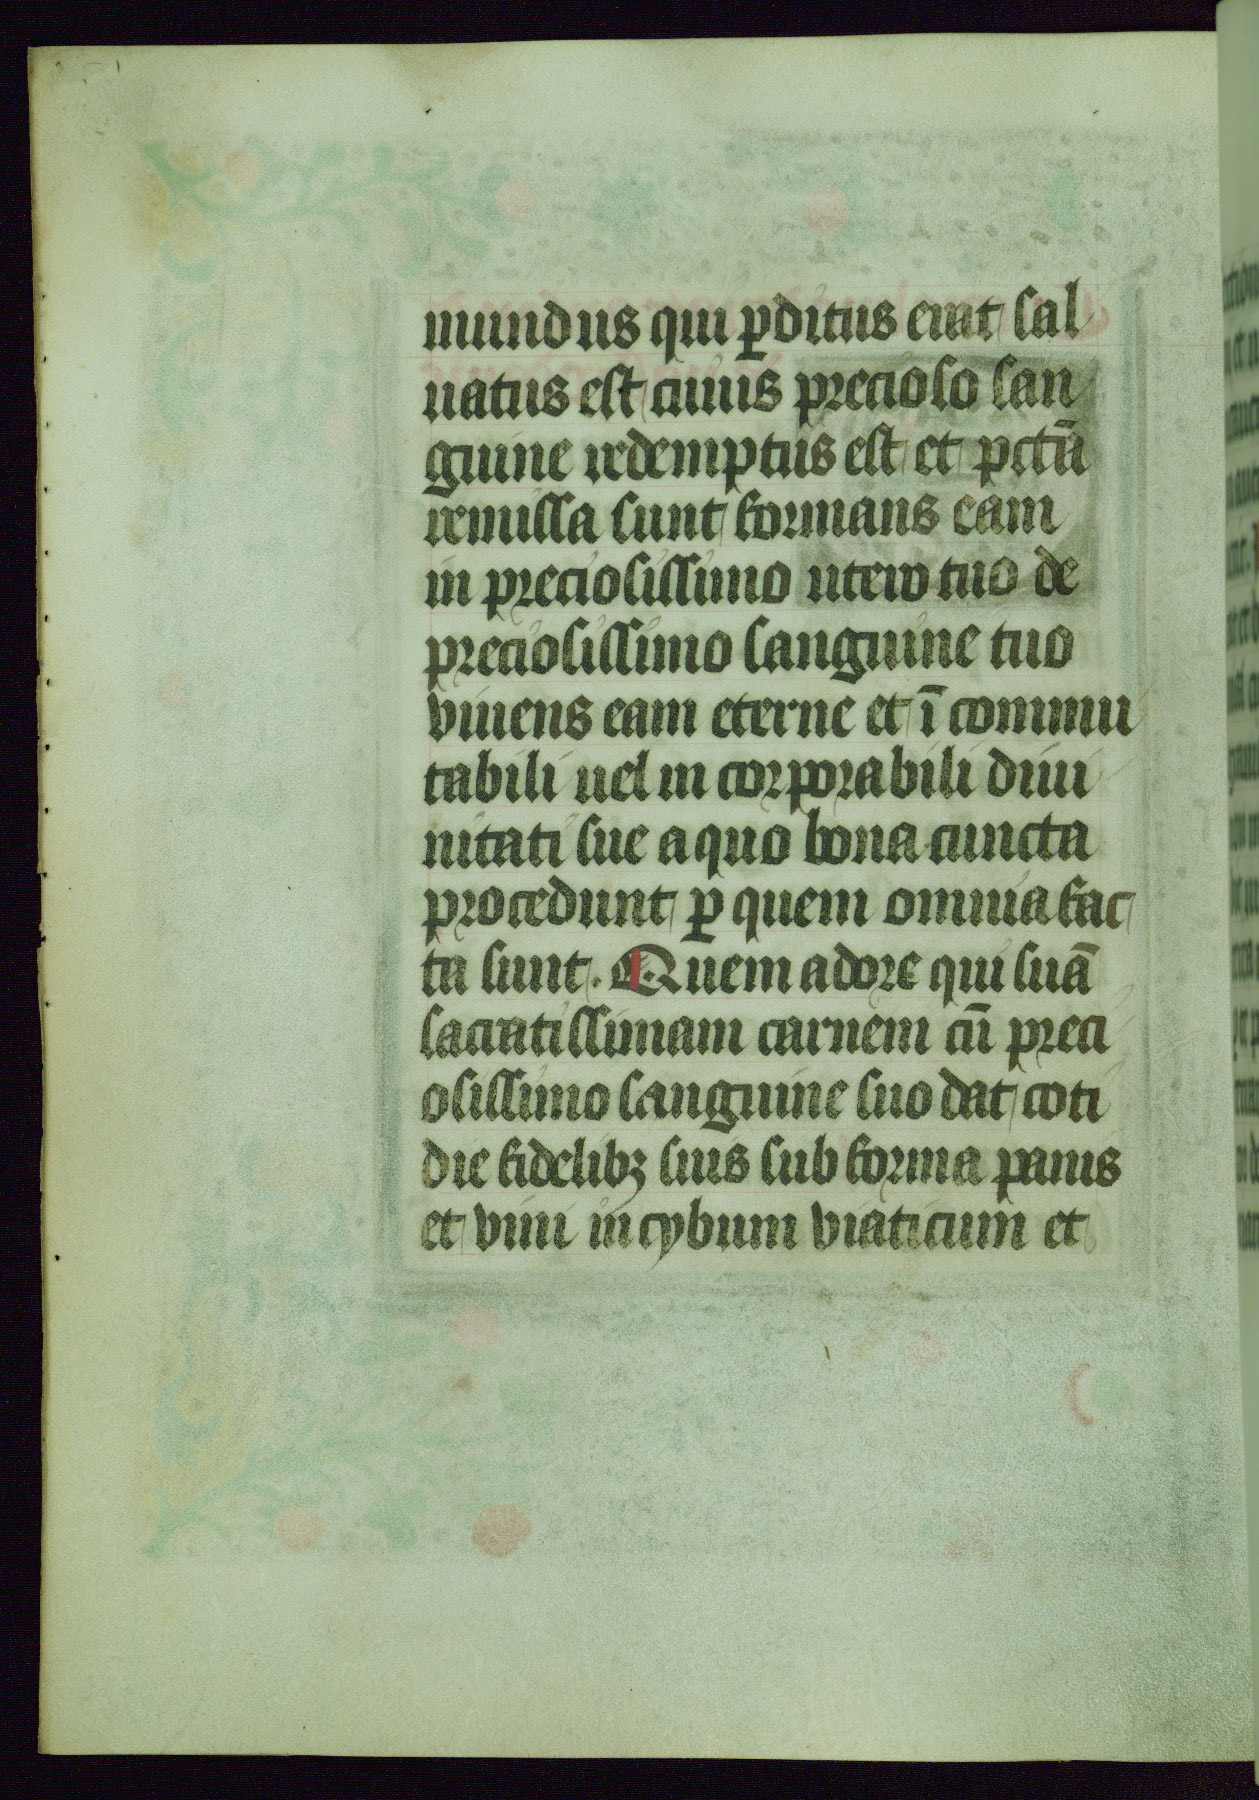 mundus qui ꝑditus erat sal
uatus est cuius precioso san
guine redemptus est et pctā
remissa sunt formans eam
in preciosissimo utero tuo de
preciosissimo sanguine tuo
viuens eam eterne et ī commu
tabili uel in corporabili diui
nitati sue a quo bona cuncta
procedunt ꝑ quem omnia fac
ta sunt. Quem adore qui suā
sacratissimam carnem cū preci
osissimo sanguine suo dat coti
die fidelibꝫ suis sub forma panis
et vini in cybum viaticum et